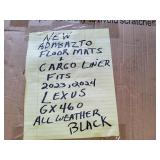 NEW
ADABAZTO
FLOOR MATS
+
CARGO LINER
FITS
2023,2024
LEXUS
GX460
ALL WEATHER
BLACK